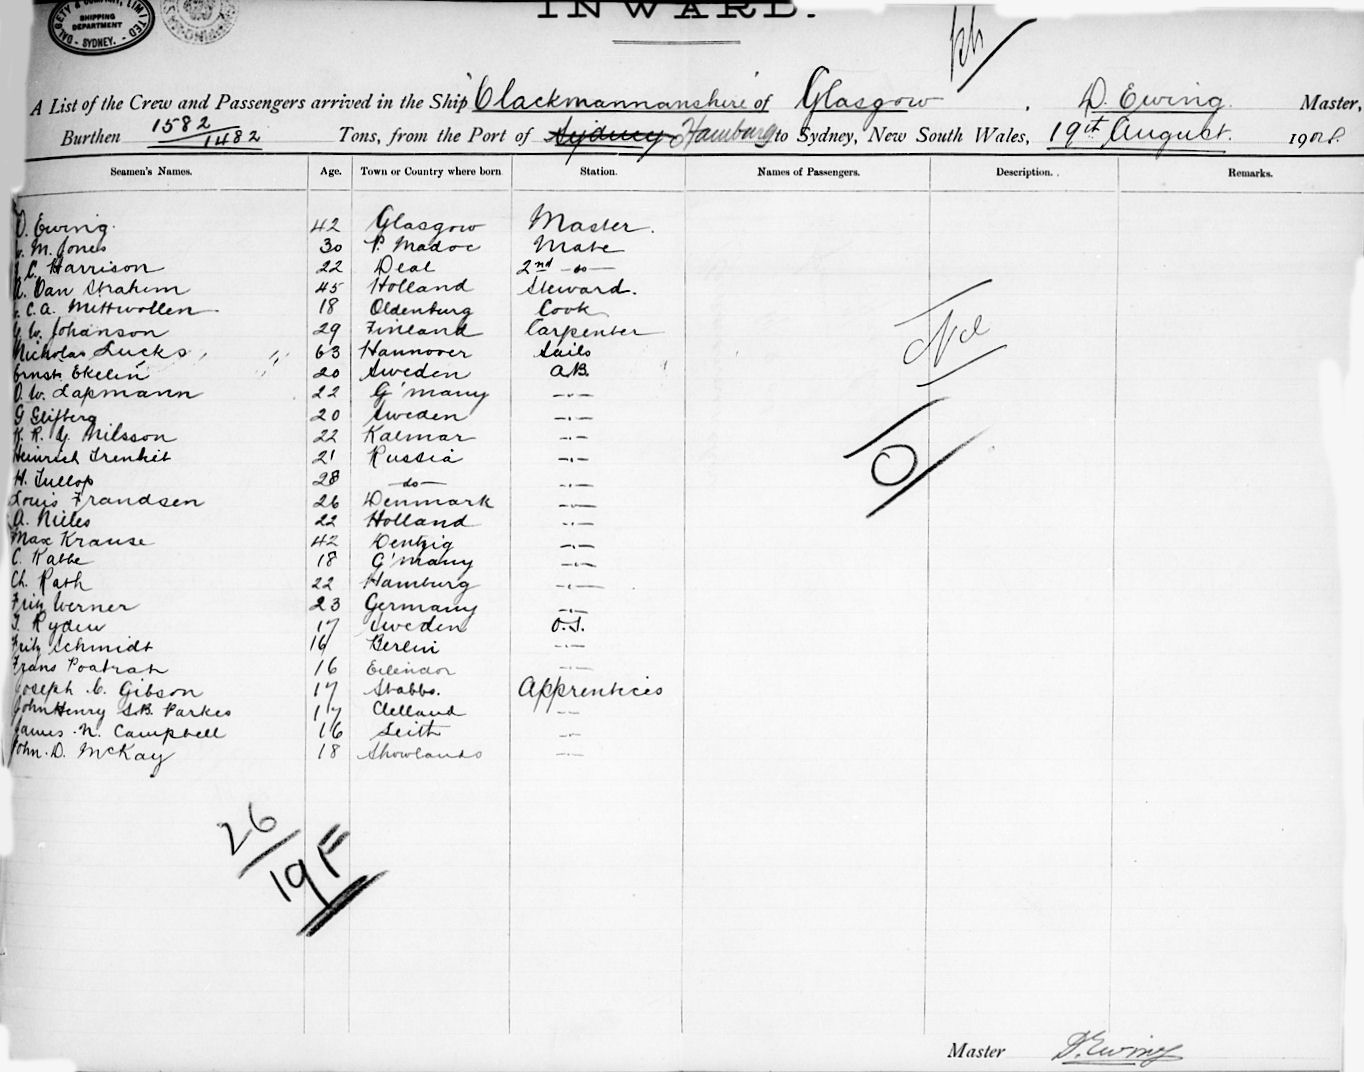 DALGETY & COMPANY, LIMITED
SHIPPING
DEPARTMENT
- SYDNEY. -
INWARD.
A List of the Crew and Passengers arrived in the Ship "Clackmannanshire" of Glasgow . D. Ewing. Master,
Burthen 1582/1482 Tons, from the Port of Sydney Hamburg to Sydney, New South Wales, 19th August. 190
Seamen's Names. Age. Town or Country where born Station. Names of Passengers. Description. Remarks.
D. Ewing. 42 Glasgow Master.
M. Jones 30 P. Madoc Mate
C. Harrison 22 Deal 2nd -do-
Van Strahem 45 Holland Steward.
C.A. Mittwollen 18 Oldenburg Cook
W. Johanson 29 Finland Carpenter
Nicholas Lucks 63 Hannover Sails
Ernst Ekelin 20 Sweden A.B.
O. W. Lapmann 22 G'many -"-
G 20 Sweden -"-
K. R. G. Nilsson 22 Kalmar -"-
Heinrich Trenkit 21 Russia -"-
H. Tullop 28 -do- -"-
Louis Frandsen 26 Denmark -"-
A. Niles 22 Holland -"-
Max Krause 42 Dentzig -"-
C. Kabbe 18 G'many -"-
Ch. Rath 22 Hamburg -"-
Fritz Werner 23 Germany -"-
Ryden 17 Sweden O.S.
Fritz Schmidt 16 Berlin -"-
Frans 16 -"-
Joseph C. Gibson 17 Stabbs. Apprentices
John Henry S.B. Parkes 17 Clelland -"-
James N. Campbell 16 Leith -"-
John D. McKay 18 -"-
26
19 F
O
Master D. Ewing